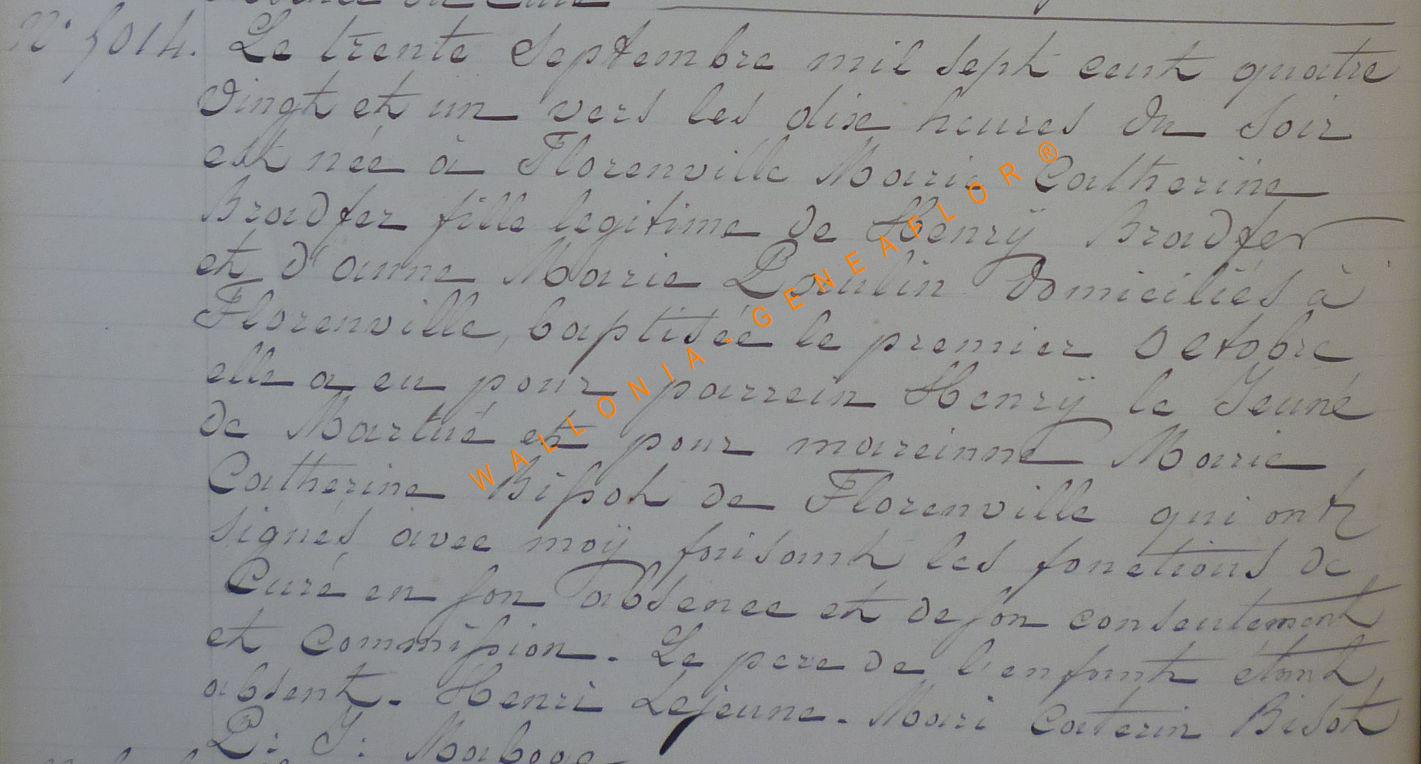 N° 5014. Le trente Septembre mil sept cent quatre
vingt et un vers les dix heures du Soir
est née à Florenville Marie Catherine
Bradfer fille legitime de Henrÿ Bradfer
et d'anne Marie Poulin domiciliés à
Florenville, baptisée le premier Octobre
elle a eu pour parrein Henrÿ le Jeuné
de Martué et pour mareinne Marie
Catherine Bissot de Florenville qui ont
signés avec moÿ faisant les fonctions de
Curé en son absence et de son consentement
et commission. Le pere de l'enfant étant
absent. Henri Lejeune. Mari Caterin Bisot
P: J:
WALLONIA - GENEAFLOR ®